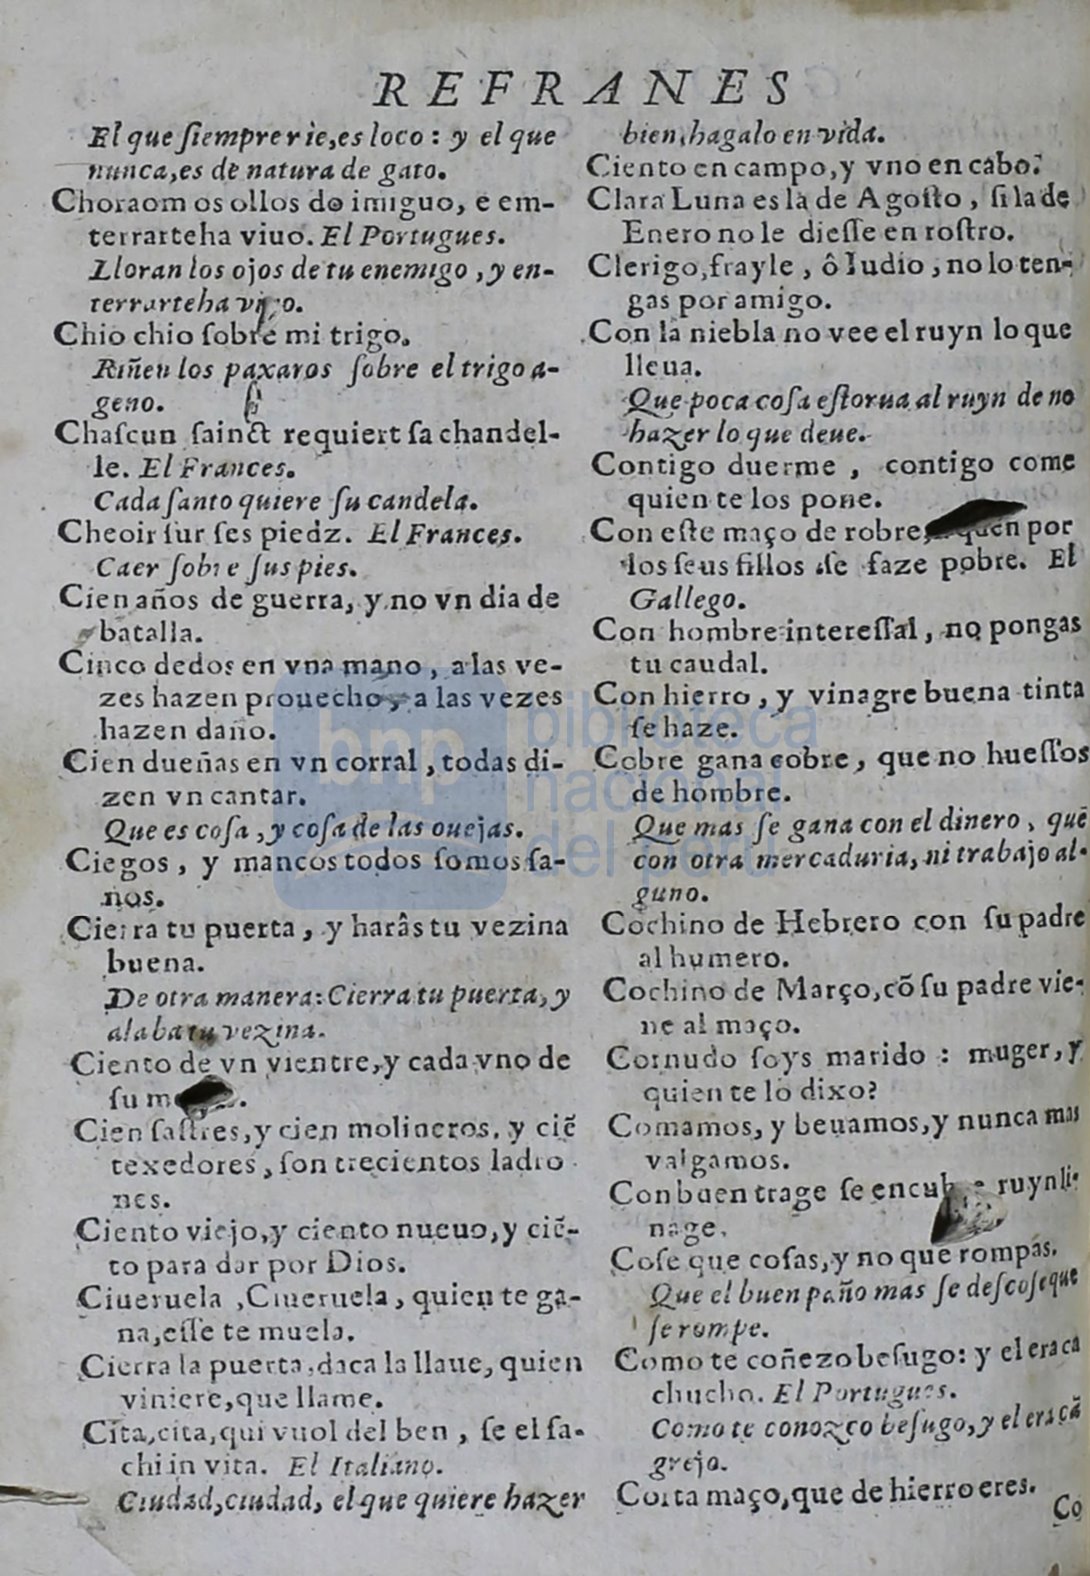 REFRANES
El que ſiempre rie,es loco : y el que
nunca,es de natura de gato.
Choraom os ollos do imiguo, e em-
terrarteha viuo. El Portugues.
Lloran los ojos de tu enemigo ,y en-
terrarteha vivo.
Chio chio ſobre mi trigo.
Riñen los paxaros ſobre el trigo a-
geno.
Chaſcun ſainct requiert ſa chandel-
le. El Frances.
Cada ſanto quiere ſu candela.
Cheoir ſur ſes piedz. El Frances.
Caer ſobre ſus pies.
Cien años de guerra, y no vn dia de
batalla.
Cinco dedos en vna mano , a las ve-
zes hazen prouecho, a las vezes
hazen daño.
Cien dueñas en vn corral , todas di-
zen vn cantar.
Que es coſa ,y coſa de las ouejas.
Ciegos , y mancos todos ſomos ſa-
nos.
Cierra tu puerta , y harâs tu vezina
buena.
De otra manera: Cierra tu puerta, y
alaba tu vezina.
Ciento de vn vientre, y cada vno de
ſu
Cien ſaſtres, y cien molineros, y ciẽ
texedores , ſon trecientos ladro
nes.
Ciento viejo, y ciento nueuo, y ciẽ-
to para dar por Dios.
Ciueruela ,Ciueruela , quien te ga-
na,eſſe te muela.
Cierra la puerta,daca la llaue, quien
viniere,que llame.
Cita,cita,qui vuol del ben , ſe el ſa-
chi in vita. El Italiano.
Ciudad,ciudad, el que quiere hazer
bien,hagalo en vida.
Ciento en campo,y vno en cabo.
Clara Luna es la de Agoſto , ſi la de
Enero no le dieſſe en roſtro.
Clerigo,frayle , ô Iudio , no lo ten-
gas por amigo.
Con la niebla no vee el ruyn lo que
lleua.
Que poca coſa eſtorua al ruyn de no
hazer lo que deue.
Contigo duerme , contigo come
quien te los pone.
Con eſte maço de robre, quen por
los ſeus fillos ſe faze pobre. El
Gallego.
Con hombre intereſſal , no pongas
tu caudal.
Con hierro , y vinagre buena tinta
ſe haze.
Cobre gana cobre , que no hueſſos
de hombre.
Que mas ſe gana con el dinero , que
con otra mercaduria, ni trabajo al-
guno.
Cochino de Hebrero con ſu padre
al humero.
Cochino de Março,cõ ſu padre vie-
ne al maço.
Cornudo ſoys marido : muger, y
quien te lo dixo?
Comamos, y beuamos,y nunca mas
valgamos.
Con buen trage ſe encub ruyn li-
nage.
Coſe que coſas,y no que rompas.
Que el buen paño mas ſe deſcoſe que
ſe rompe.
Como te coñezo beſugo: y el era ca
chucho. El Portugues.
Como te conozco beſugo, y el era cã
grejo.
Corta maço,que de hierro eres.
Co